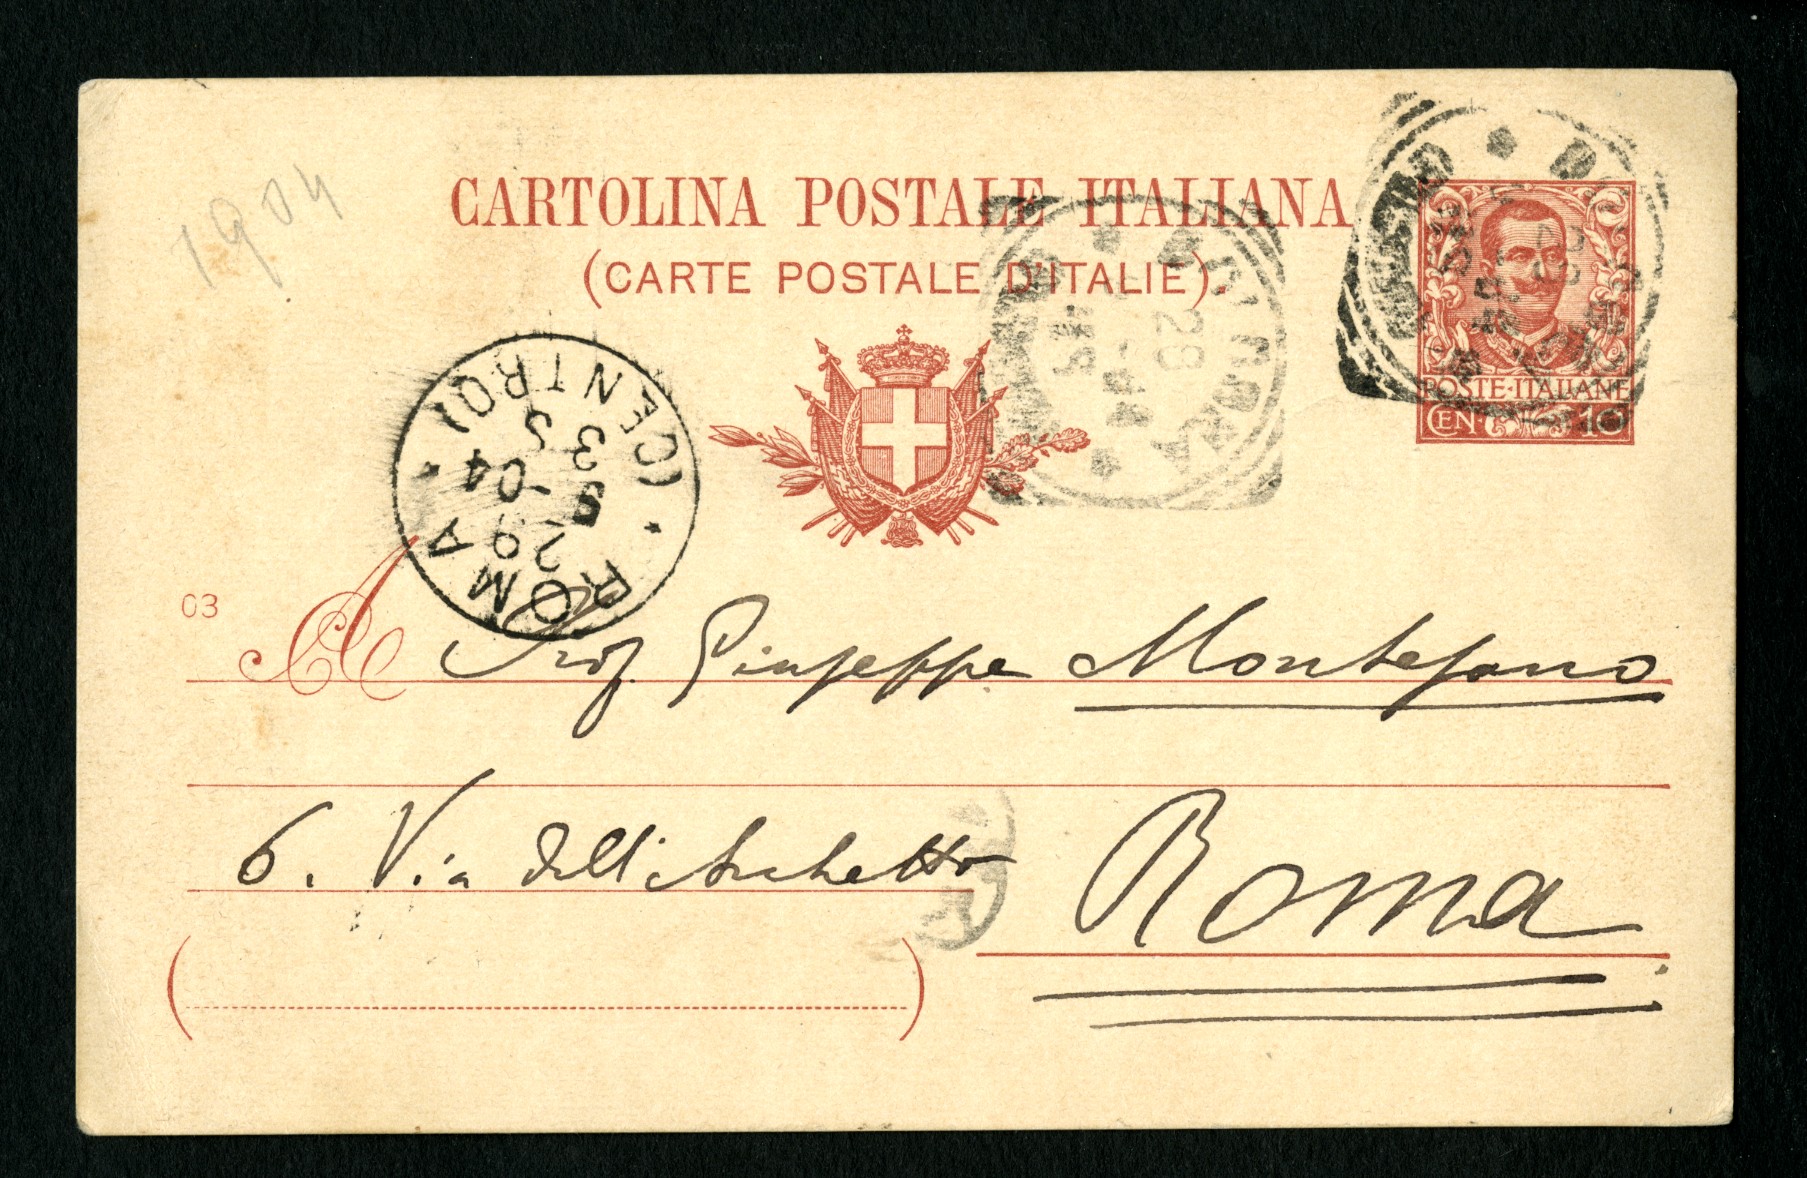 1904
CARTOLINA POSTALE ITALIANA
(CARTE POSTALE D'ITALIE).
POSTE·ITALIANE
CEN. 10
ROMA (CENTRO)
29
5
-04
3 S
03
A Prof. Giuseppe Montesano
6. Via dell'Archetto Roma